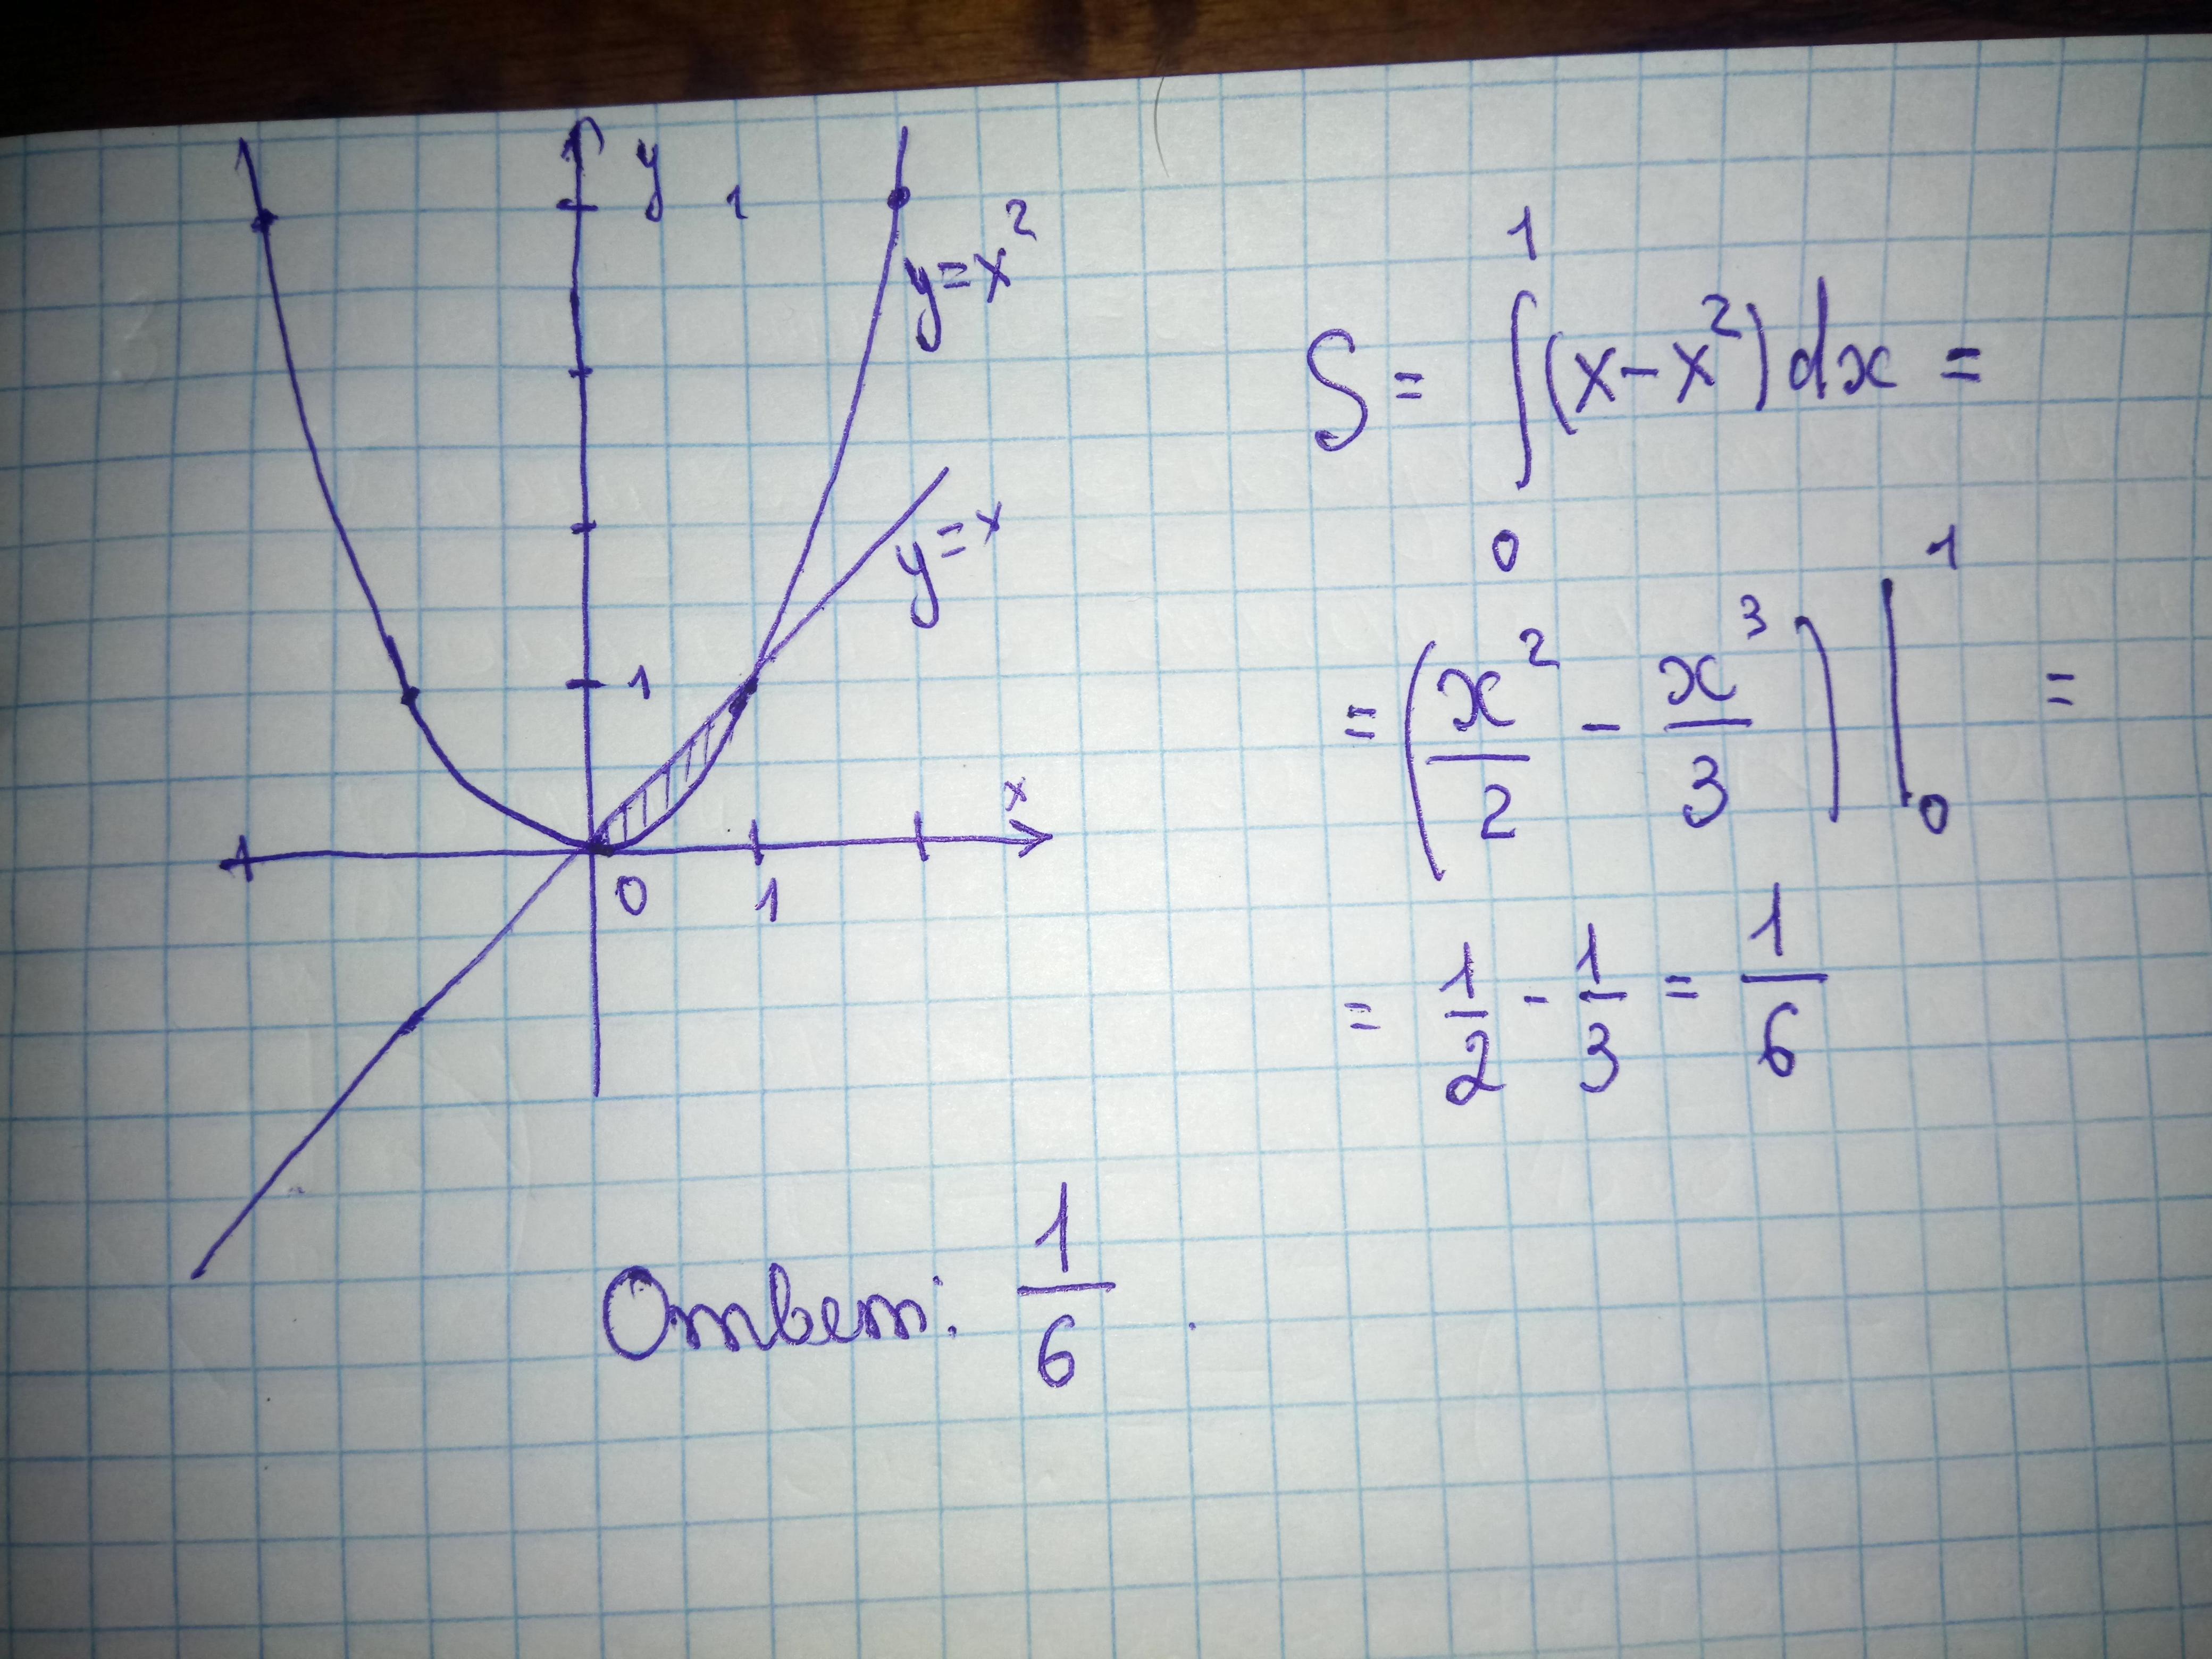 y 1
y=x²
y=x
1
x
0 1
S = ∫₀¹ (x-x²) dx =
= (x²/2 - x³/3) |₀¹ =
= 1/2 - 1/3 = 1/6
Ответ: 1/6.